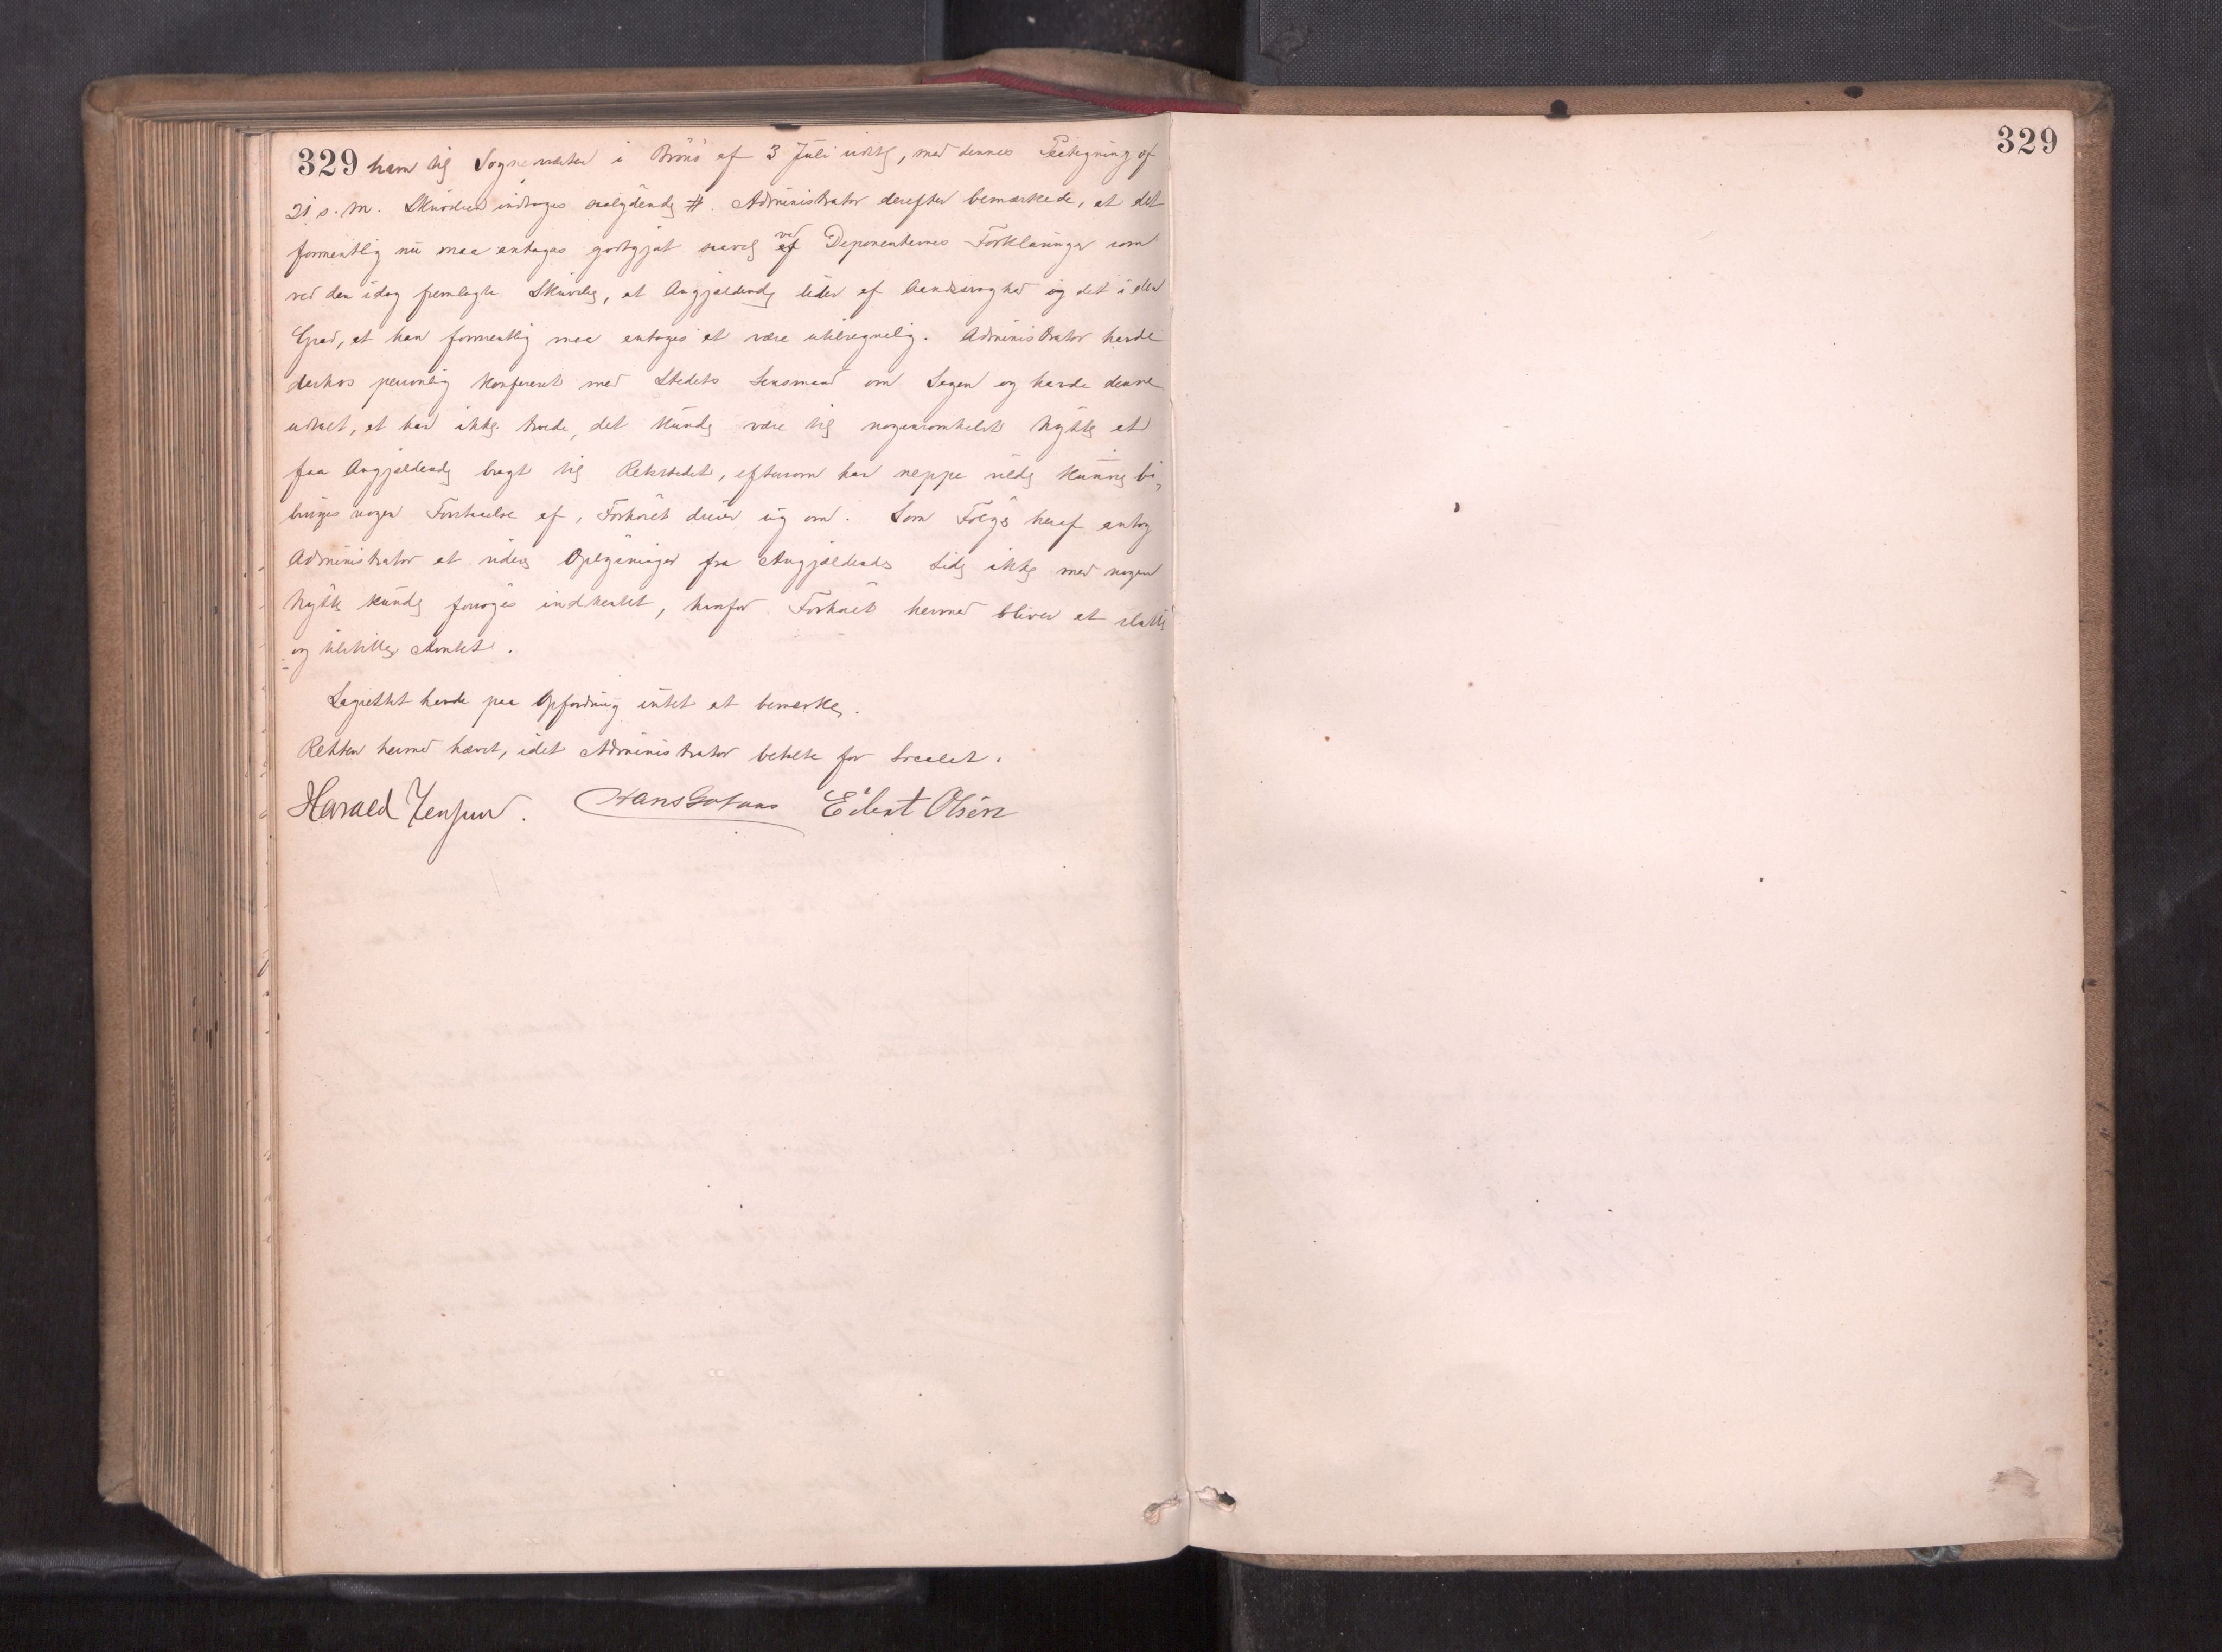 329 ham til Sognepresten i Brönö af 3 Juli sidstl, med dennes Paategning af
21 s. M. Skrivelsen indtages saalydende #. Administrator derefter bemærkede, at det
formentlig nu maa antages godtgjort saavel ved af Deponenternes Forklaringer som
ved den idag fremlagte Skrivelse, at Angjældende lider af Aandssvaghed og det i den
Grad, at han formentlig maa antages at være utilregnelig. Administrator havde
derhos personlig konfereret med Stedets Lensmand om Sagen og havde denne
udtalt, at han ikke troede, det kunde være til nogensomhelst Nytte at
faa Angjældende bragt til Retsstedet, eftersom han neppe vilde kunne bi-
bringes nogen Forstaaelse af, Forhöret dreier sig om. Som Fölge heraf antog
Administrator at videre Oplysninger fra Angjældendes Side ikke med nogen
Nytte kunde forsöges indhentet, hvorfor Forhöret hermed bliver at slutte
og tilstille Amtet.
Lagrettet havde paa Opfordring intet at bemærke.
Retten hermed hævet, idet Administrator betalte for Localet.
Harald Jensen. Hans Edvert Olsen
329